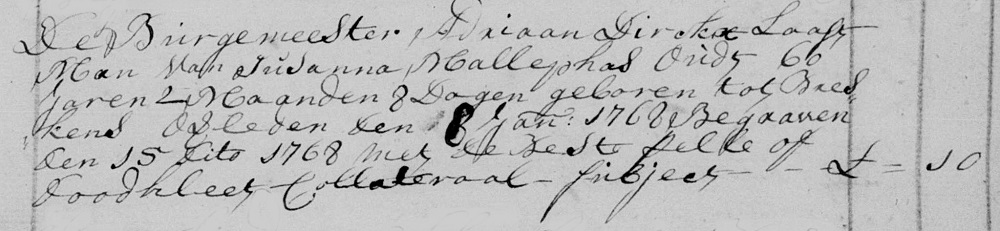 De Burgemeester Adriaan Dirckx Laast
Man van Susanna Mallephas Oudt 66
Jaren 2 Maanden 8 Dagen geboren tot Bres-
kens Overleden den 8 Jan: 1768 Begraaven
den 15 dito 1768 met de Beste pelle of
doodkleet Collateraal - subject - - £ = 10